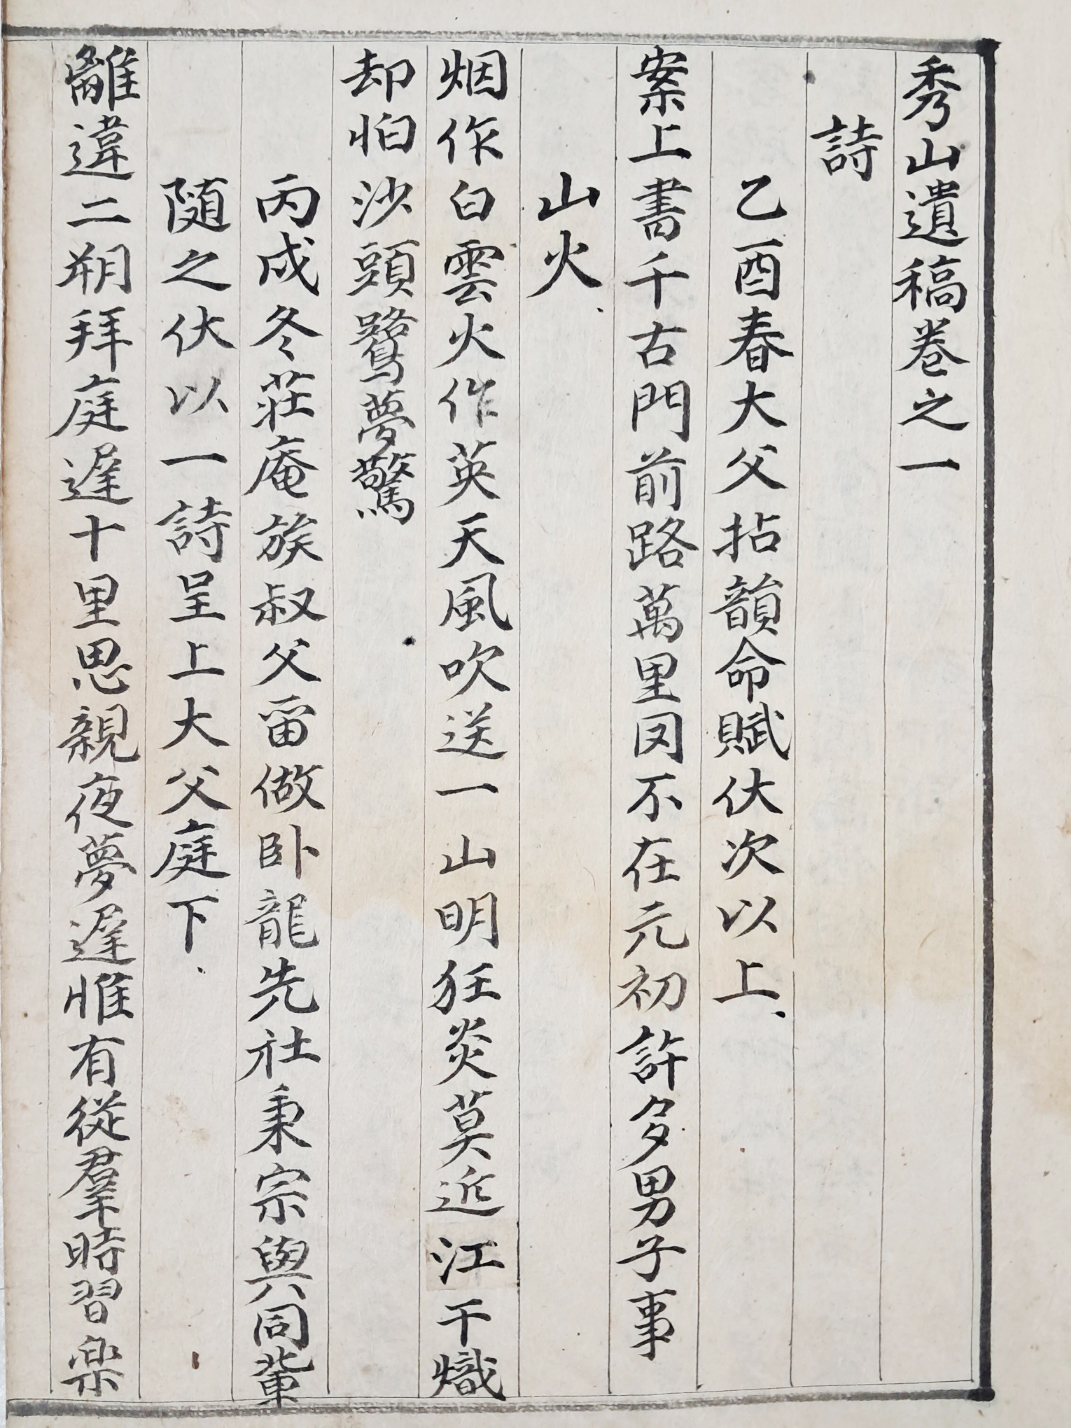 秀山遺稿卷之一
詩
乙酉春大父拈韻命賦伏次以上
案上書千古門前路萬里囙不在元初許多男子事
山火
烟作白雲火作英天風吹送一山明狂炎莫近江干熾
却怕沙頭鷺夢驚
丙戌冬莊庵族叔父畱做卧龍先社秉宗與同輩
随之伏以一詩呈上大父庭下
離違二朔拜庭遅十里思親夜夢遅惟有從羣時習楽